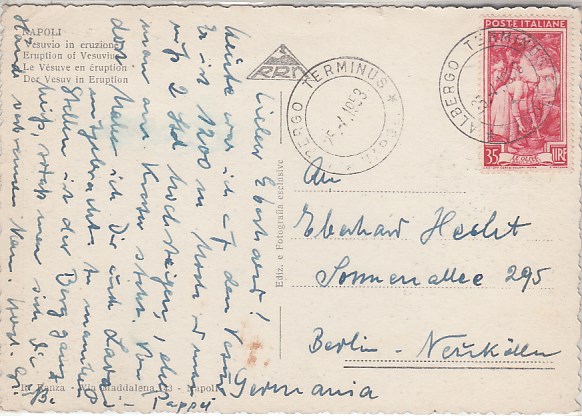 NAPOLI
Vesuvio in eruzione
Eruption of Vesuvius
Le Vésuve en éruption
Der Vesuv in Eruption
Lieber Eberhard!
Heute war ich auf dem Vesuv
Er ist 1200 m hoch u man
muß 2 Std hochsteigen, ehe
man am Krater steht. Von
der habe ich Dir auch Lava
mitgebracht. An manchen
Stellen ist der Berg ganz
heiß, man sich die
Hände verbrennen kann. Herzl. Grüße
Pappi
Ediz. e Fotografia esclusive
R. Panza - Via Maddalena 143 - Napoli
ALBERGO TERMINUS
-4.1953
ALBERGO TERMINUS
POSTE ITALIANE
35 LIRE
An
Eberhard Hecht
Sonnenallee 295
Berlin - Neukölln
Germania